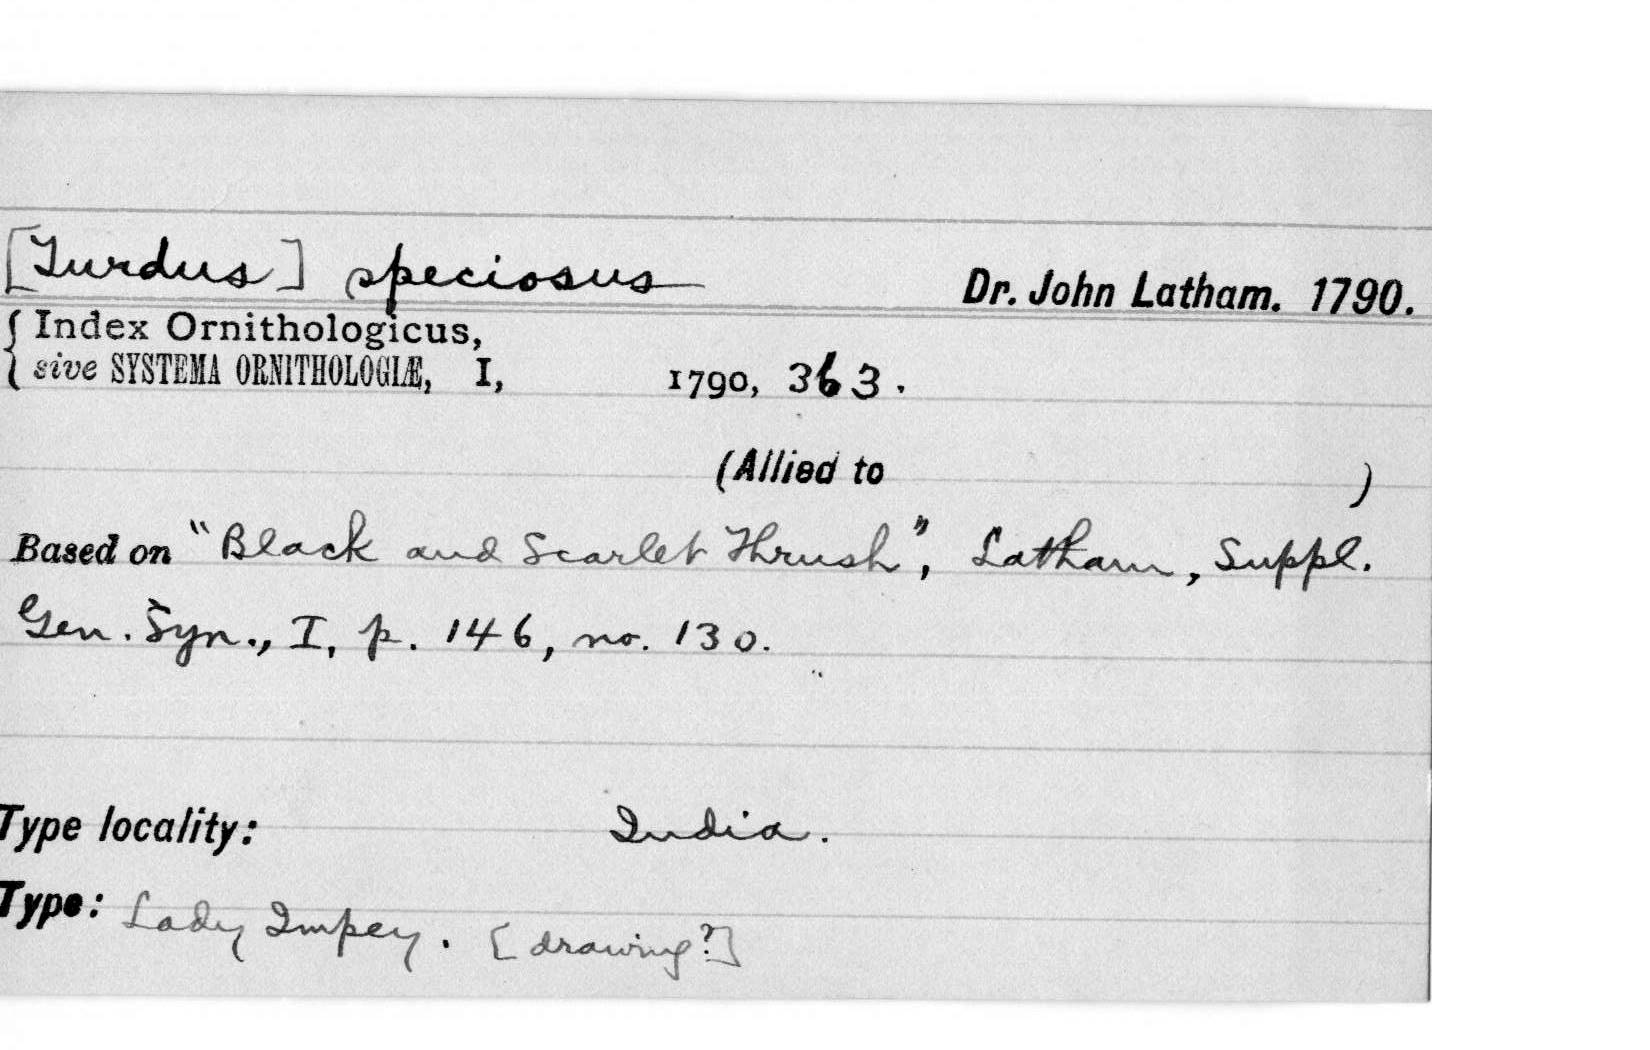 [Turdus] speciosus Dr. John Latham. 1790.
{ Index Ornithologicus,
sive SYSTEMA ORNITHOLOGIÆ, I, 1790, 363.
(Allied to )
Based on "Black and Scarlet Thrush", Latham, Suppl.
Gen. Syn., I, p. 146, no. 130.
Type locality: India.
Type: Lady Impey. [drawing?]